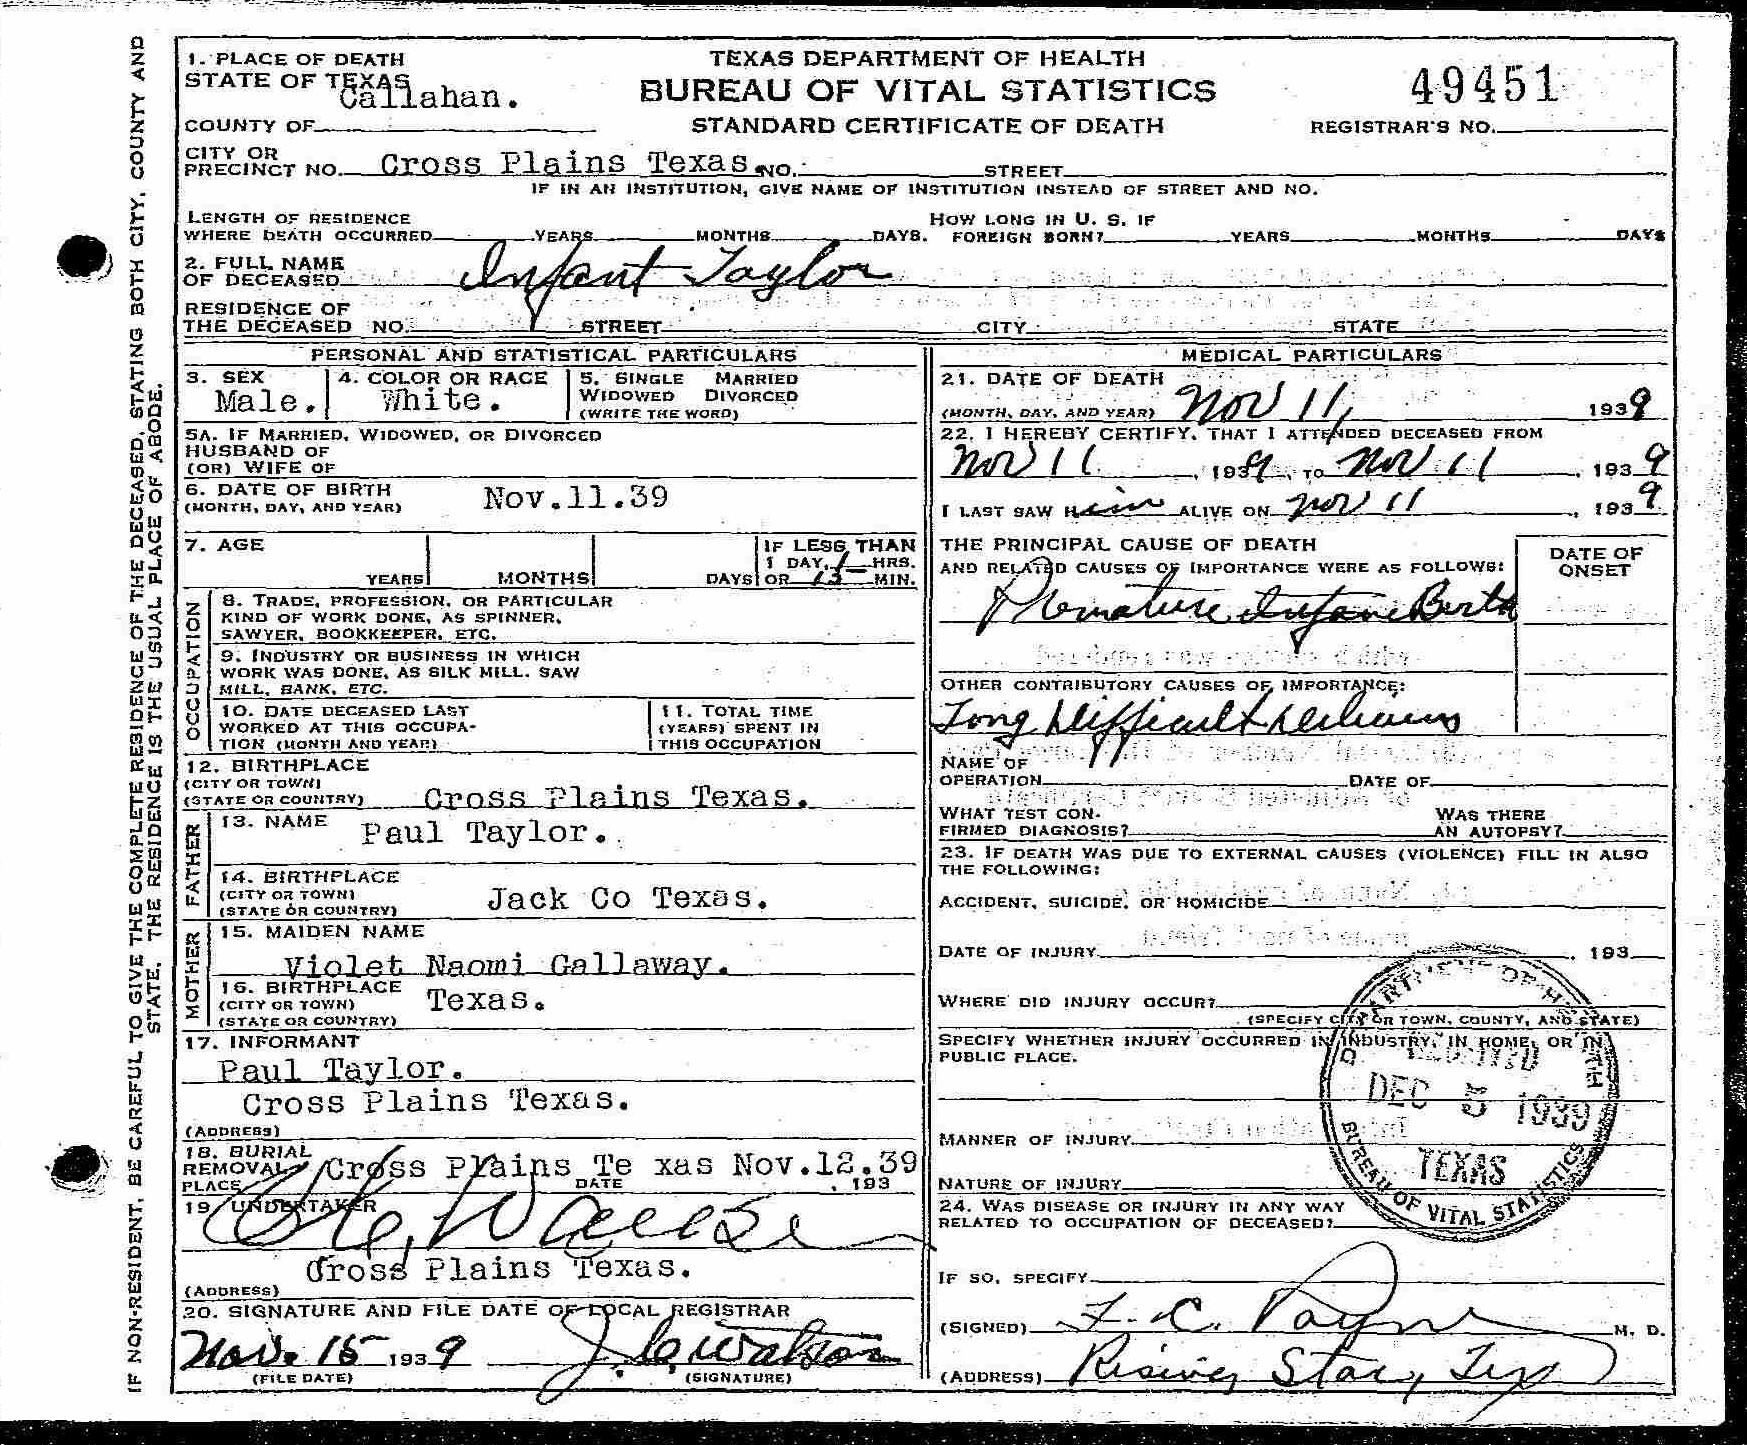 IF NON-RESIDENT, BE CAREFUL TO GIVE THE COMPLETE RESIDENCE OF THE DECEASED, STATING BOTH CITY, COUNTY AND
STATE. THE RESIDENCE IS THE USUAL PLACE OF ABODE.
1. PLACE OF DEATH
STATE OF TEXAS
Callahan.
COUNTY OF
TEXAS DEPARTMENT OF HEALTH
BUREAU OF VITAL STATISTICS
STANDARD CERTIFICATE OF DEATH
49451
REGISTRAR'S NO.
CITY OR
PRECINCT NO. Cross Plains Texas. NO. STREET
IF IN AN INSTITUTION, GIVE NAME OF INSTITUTION INSTEAD OF STREET AND NO.
LENGTH OF RESIDENCE
WHERE DEATH OCCURRED YEARS MONTHS DAYS.
HOW LONG IN U. S. IF
FOREIGN BORN? YEARS MONTHS DAYS
2. FULL NAME
OF DECEASED Infant Taylor
RESIDENCE OF
THE DECEASED NO. STREET CITY STATE
PERSONAL AND STATISTICAL PARTICULARS
3. SEX
Male.
4. COLOR OR RACE
White.
5. SINGLE MARRIED
WIDOWED DIVORCED
(WRITE THE WORD)
5A. IF MARRIED, WIDOWED, OR DIVORCED
HUSBAND OF
(OR) WIFE OF
6. DATE OF BIRTH
(MONTH, DAY, AND YEAR) Nov.11.39
7. AGE
YEARS MONTHS DAYS
IF LESS THAN
1 DAY, 1 HRS.
OR 15 MIN.
OCCUPATION
8. TRADE, PROFESSION, OR PARTICULAR
KIND OF WORK DONE, AS SPINNER,
SAWYER, BOOKKEEPER, ETC.
9. INDUSTRY OR BUSINESS IN WHICH
WORK WAS DONE, AS SILK MILL, SAW
MILL, BANK, ETC.
10. DATE DECEASED LAST
WORKED AT THIS OCCUPA-
TION (MONTH AND YEAR)
11. TOTAL TIME
(YEARS) SPENT IN
THIS OCCUPATION
12. BIRTHPLACE
(CITY OR TOWN)
(STATE OR COUNTRY) Cross Plains Texas.
FATHER
13. NAME Paul Taylor.
14. BIRTHPLACE
(CITY OR TOWN)
(STATE OR COUNTRY) Jack Co Texas.
MOTHER
15. MAIDEN NAME
Violet Naomi Callaway.
16. BIRTHPLACE
(CITY OR TOWN) Texas.
(STATE OR COUNTRY)
17. INFORMANT
Paul Taylor.
Cross Plains Texas.
(ADDRESS)
18. BURIAL
REMOVAL Cross Plains Te xas Nov.12.39
PLACE DATE , 193
19. UNDERTAKER
Cross Plains Texas.
(ADDRESS)
20. SIGNATURE AND FILE DATE OF LOCAL REGISTRAR
Nov. 15 1939
(FILE DATE) (SIGNATURE)
MEDICAL PARTICULARS
21. DATE OF DEATH
(MONTH, DAY, AND YEAR) Nov 11, 1939
22. I HEREBY CERTIFY, THAT I ATTENDED DECEASED FROM
Nov 11 , 1939, TO Nov 11 , 1939
I LAST SAW Him ALIVE ON Nov 11 , 1939
THE PRINCIPAL CAUSE OF DEATH
AND RELATED CAUSES OF IMPORTANCE WERE AS FOLLOWS:
DATE OF
ONSET
Premature Infant Birth
OTHER CONTRIBUTORY CAUSES OF IMPORTANCE:
Long Difficult
NAME OF
OPERATION DATE OF
WHAT TEST CON-
FIRMED DIAGNOSIS?
WAS THERE
AN AUTOPSY?
23. IF DEATH WAS DUE TO EXTERNAL CAUSES (VIOLENCE) FILL IN ALSO
THE FOLLOWING:
ACCIDENT, SUICIDE, OR HOMICIDE
DATE OF INJURY , 193
WHERE DID INJURY OCCUR?
(SPECIFY CITY OR TOWN, COUNTY, AND STATE)
SPECIFY WHETHER INJURY OCCURRED IN INDUSTRY, IN HOME, OR IN
PUBLIC PLACE.
MANNER OF INJURY
NATURE OF INJURY
DEPARTMENT OF HEALTH
RECEIVED
DEC 5 1939
TEXAS
BUREAU OF VITAL STATISTICS
24. WAS DISEASE OR INJURY IN ANY WAY
RELATED TO OCCUPATION OF DECEASED?
IF SO, SPECIFY
(SIGNED) F. C. Payne M. D.
(ADDRESS) Rising Star, Tex